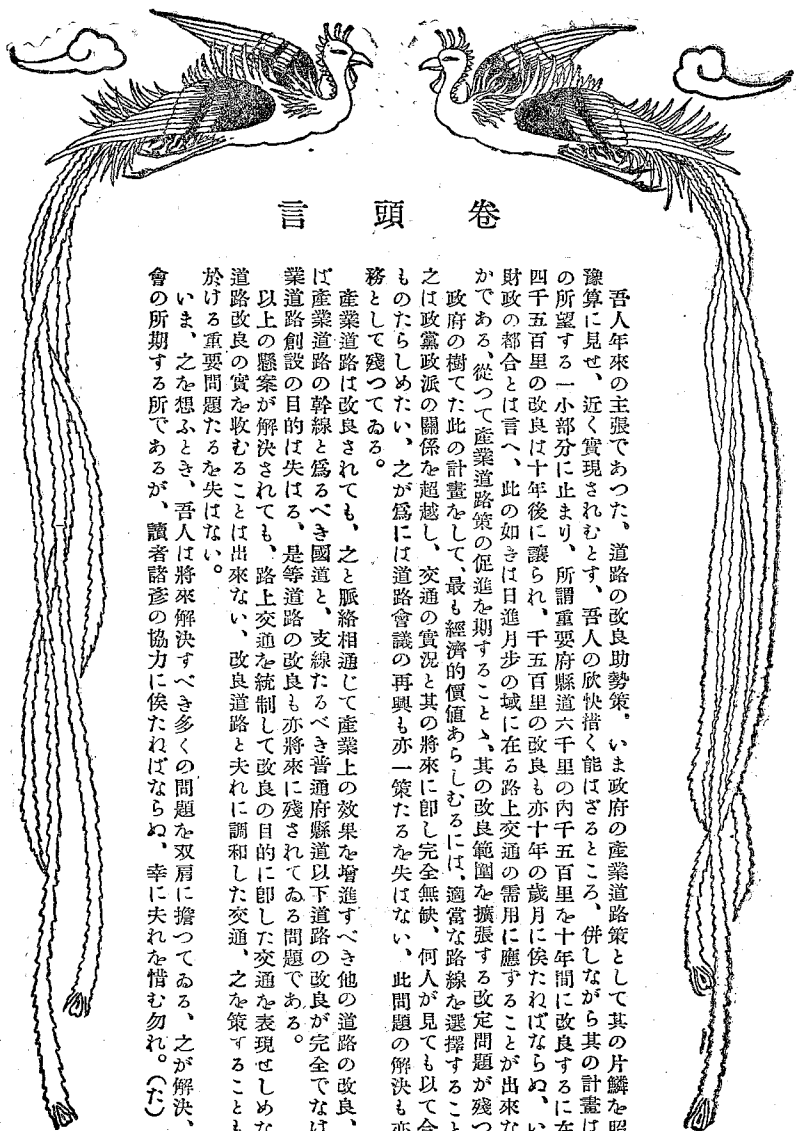 卷頭言
吾人年來の主張であつた、道路の改良助勢策、いま政府の產業道路策として其の片鱗を昭
豫算に見せ、近く實現されむとす、吾人の欣快措く能はざるところ、併しながら其の計畫は
の所望する一小部分に止まり、所謂重要府縣道六千里の內千五百里を十年間に改良するに在
四千五百里の改良は十年後に讓られ、千五百里の改良も亦十年の歲月に俟たねばならぬ、い
財政の都合とは言へ、此の如きは日進月步の域に在る路上交通の需用に應ずることが出來な
かである、從つて產業道路策の促進を期することゝ、其の改良範圍を擴張する改定問題が殘つ
政府の樹てた此の計畫をして、最も經濟的價値あらしむるには、適當な路線を選擇すること
之は政黨政派の關係を超越し、交通の實況と其の將來に卽し完全無缺、何人が見ても以て合
ものたらしめたい、之が爲には道路會議の再興も亦一策たるを失はない、此問題の解決も亦
務として殘つてゐる。
產業道路は改良されても、之と脈絡相通じて產業上の效果を增進すべき他の道路の改良、
ば產業道路の幹線と爲るべき國道と、支線たるべき普通府縣道以下道路の改良が完全でなけ
業道路創設の目的は失はる、是等道路の改良も亦將來に殘されてゐる問題である。
以上の懸案が解決されても、路上交通を統制して改良の目的に卽した交通を表現せしめな
道路改良の實を收むることは出來ない、改良道路と夫れに調和した交通、之を策することも
於ける重要問題たるを失はない。
いま、之を想ふとき、吾人は將來解決すべき多くの問題を双肩に擔つてゐる、之が解決、
會の所期する所であるが、讀者諸彥の協力に俟たねばならぬ、幸に夫れを惜む勿れ。(た)